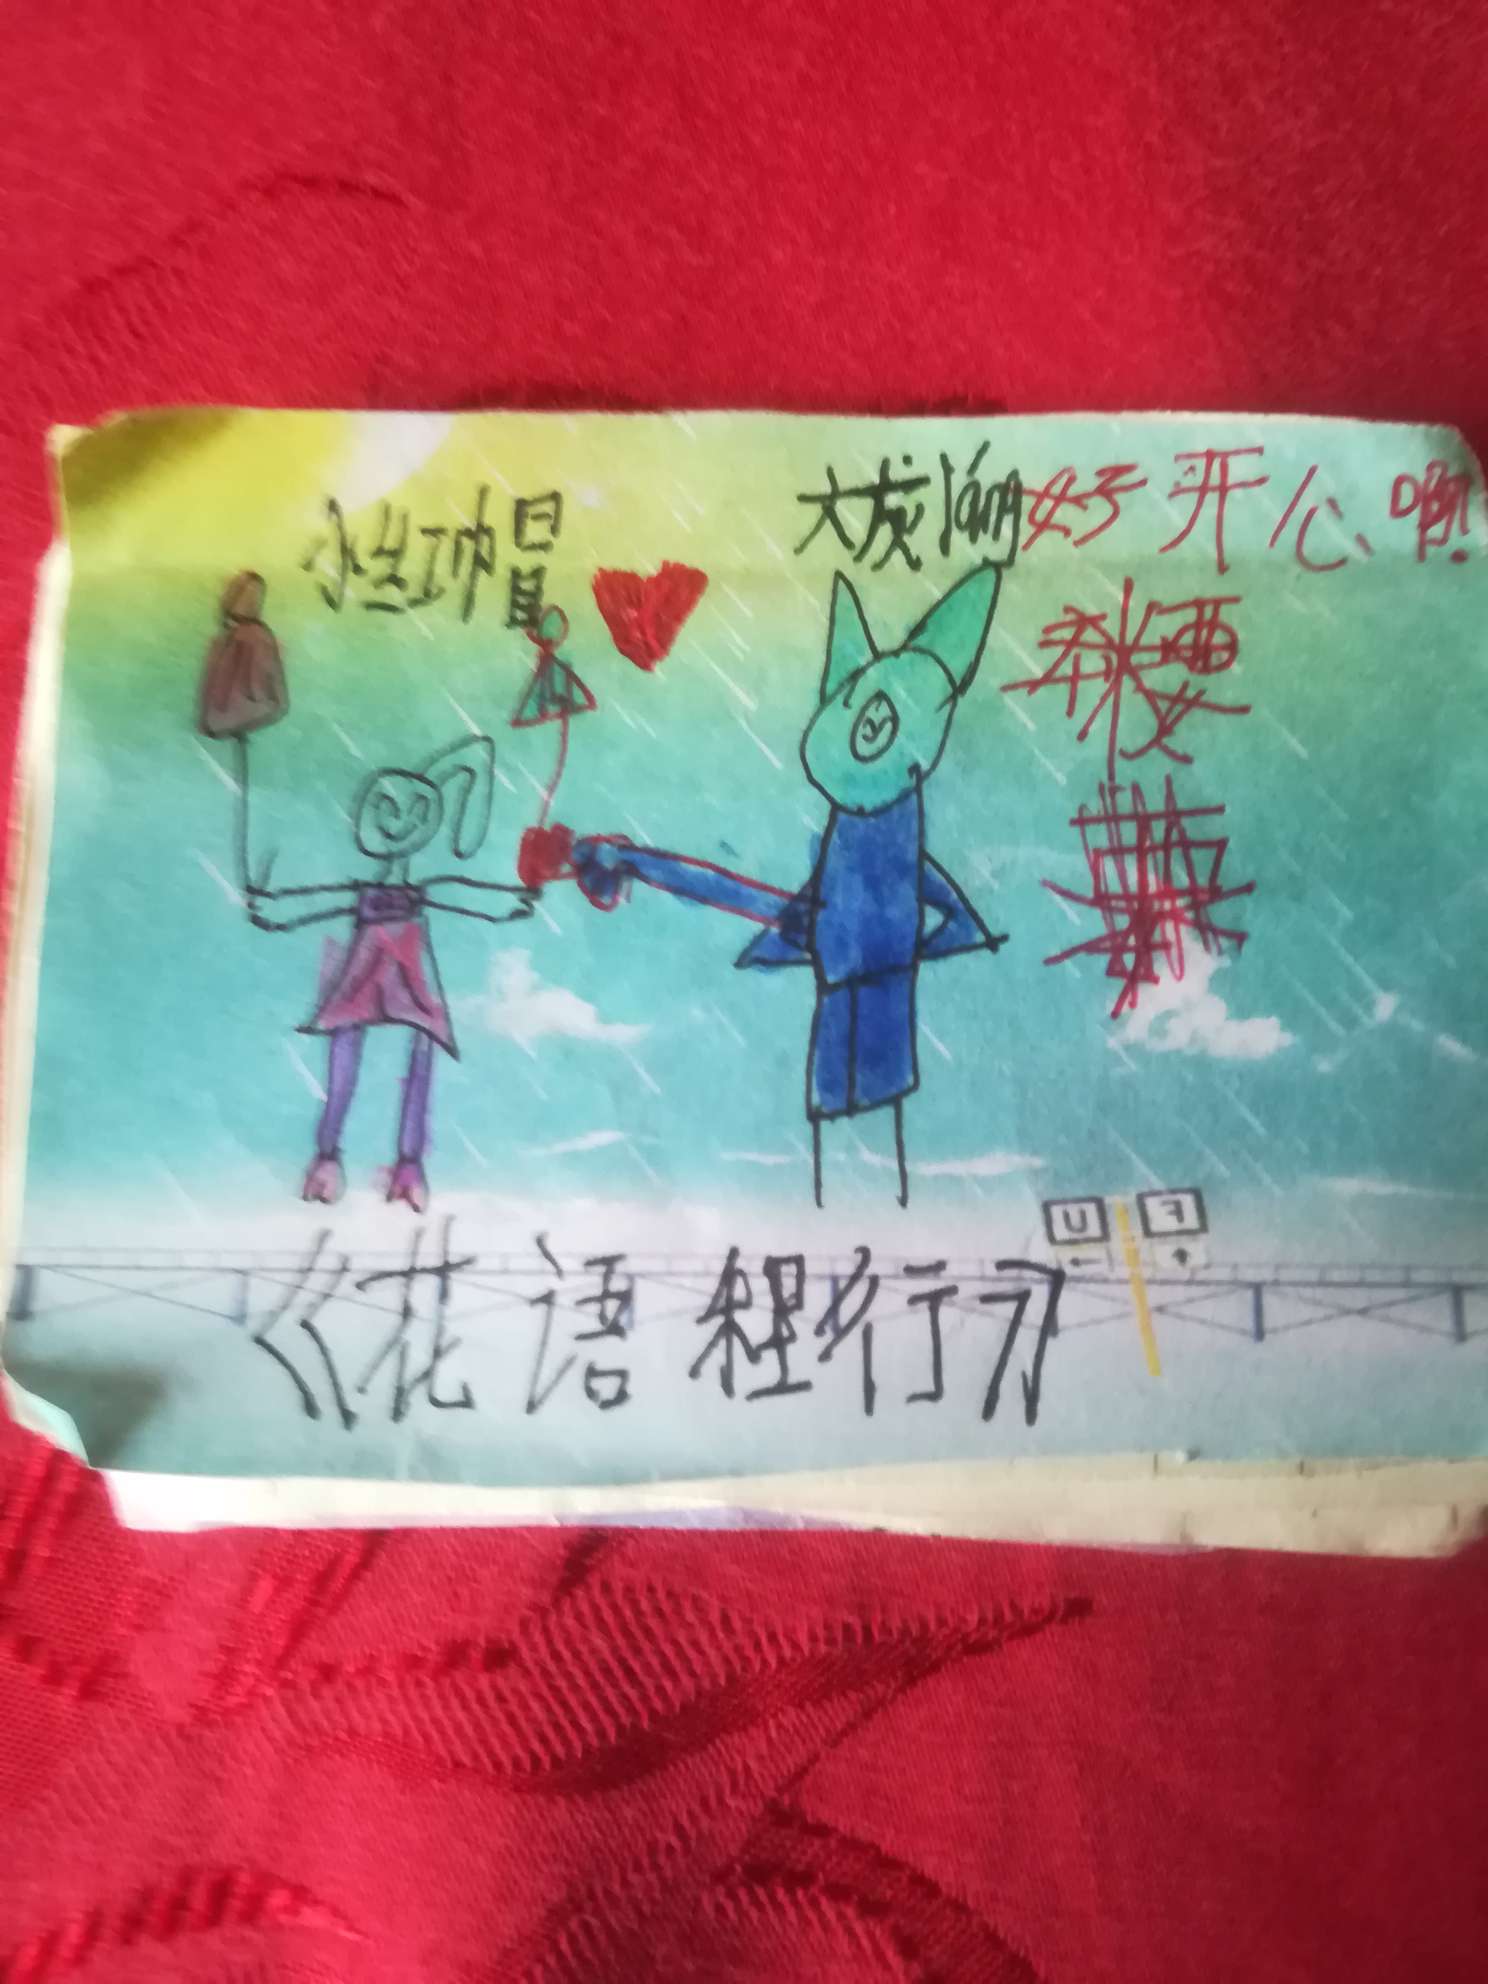 小红帽
大灰láng好开心啊!
《花语程行》
U